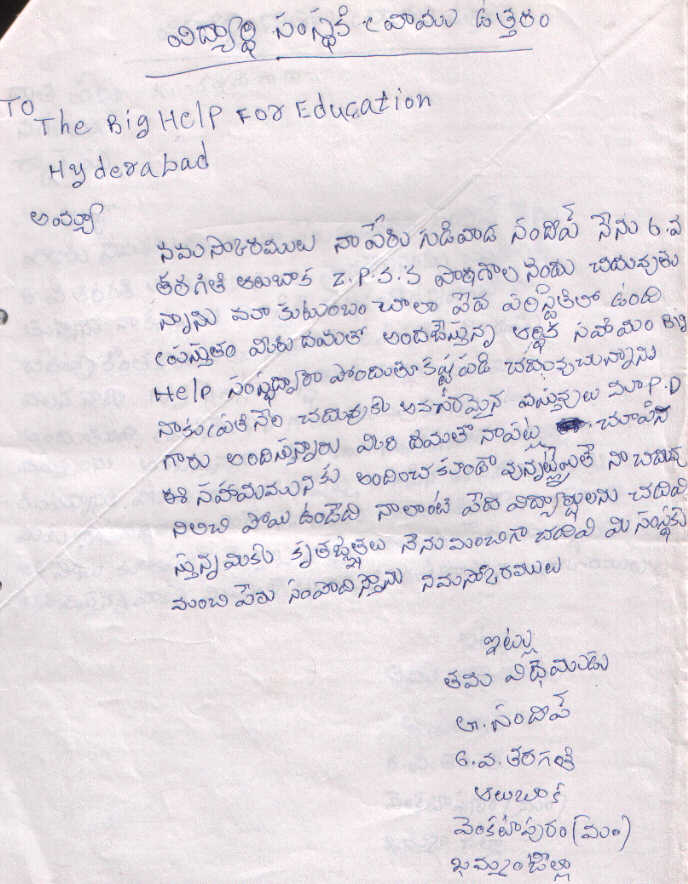 విద్యార్థి సంస్థకి వ్రాయు ఉత్తరం
TO
The Big HelP For Education
Hyderabad
అయ్యా
నమస్కారములు నా పేరు గుడివాడ సందీప్ నేను 6.వ
తరగతి ఆలుబాక Z.P.S.S పాఠశాల నందు చదువుతు
న్నాను మా కుటుంబం చాలా పేద పరిస్థితిలో ఉంది
ప్రస్తుతం మీరు దయతో అందచేస్తున్న ఆర్థిక సహాయం Big
Help సంస్థద్వారా పొందుతూ కష్టపడి చదువుచున్నాను
నాకు ప్రతి నెల చదువుకు అవసరమైన వస్తువులు మా P.D
గారు అందిస్తున్నారు మీరు దయతో నాపట్ల చూపిన
ఈ సహాయమునకు అందించ కుండా వున్నట్లైతే నా చదువు
నిలిచి పోయి ఉండేది నాలాంటి పేద విద్యార్థులను చదివి
స్తున్న మీకు కృతజ్ఞతలు నేను మంచిగా చదివి మీ సంస్థకు
మంచి పేరు సంపాదిస్తాను నమస్కారములు
ఇట్లు
తమ విధేయుడు
జి.సందీప్
6.వ.తరగతి
ఆలుబాక
వెంకటాపురం(మం)
ఖమ్మంజిల్లా